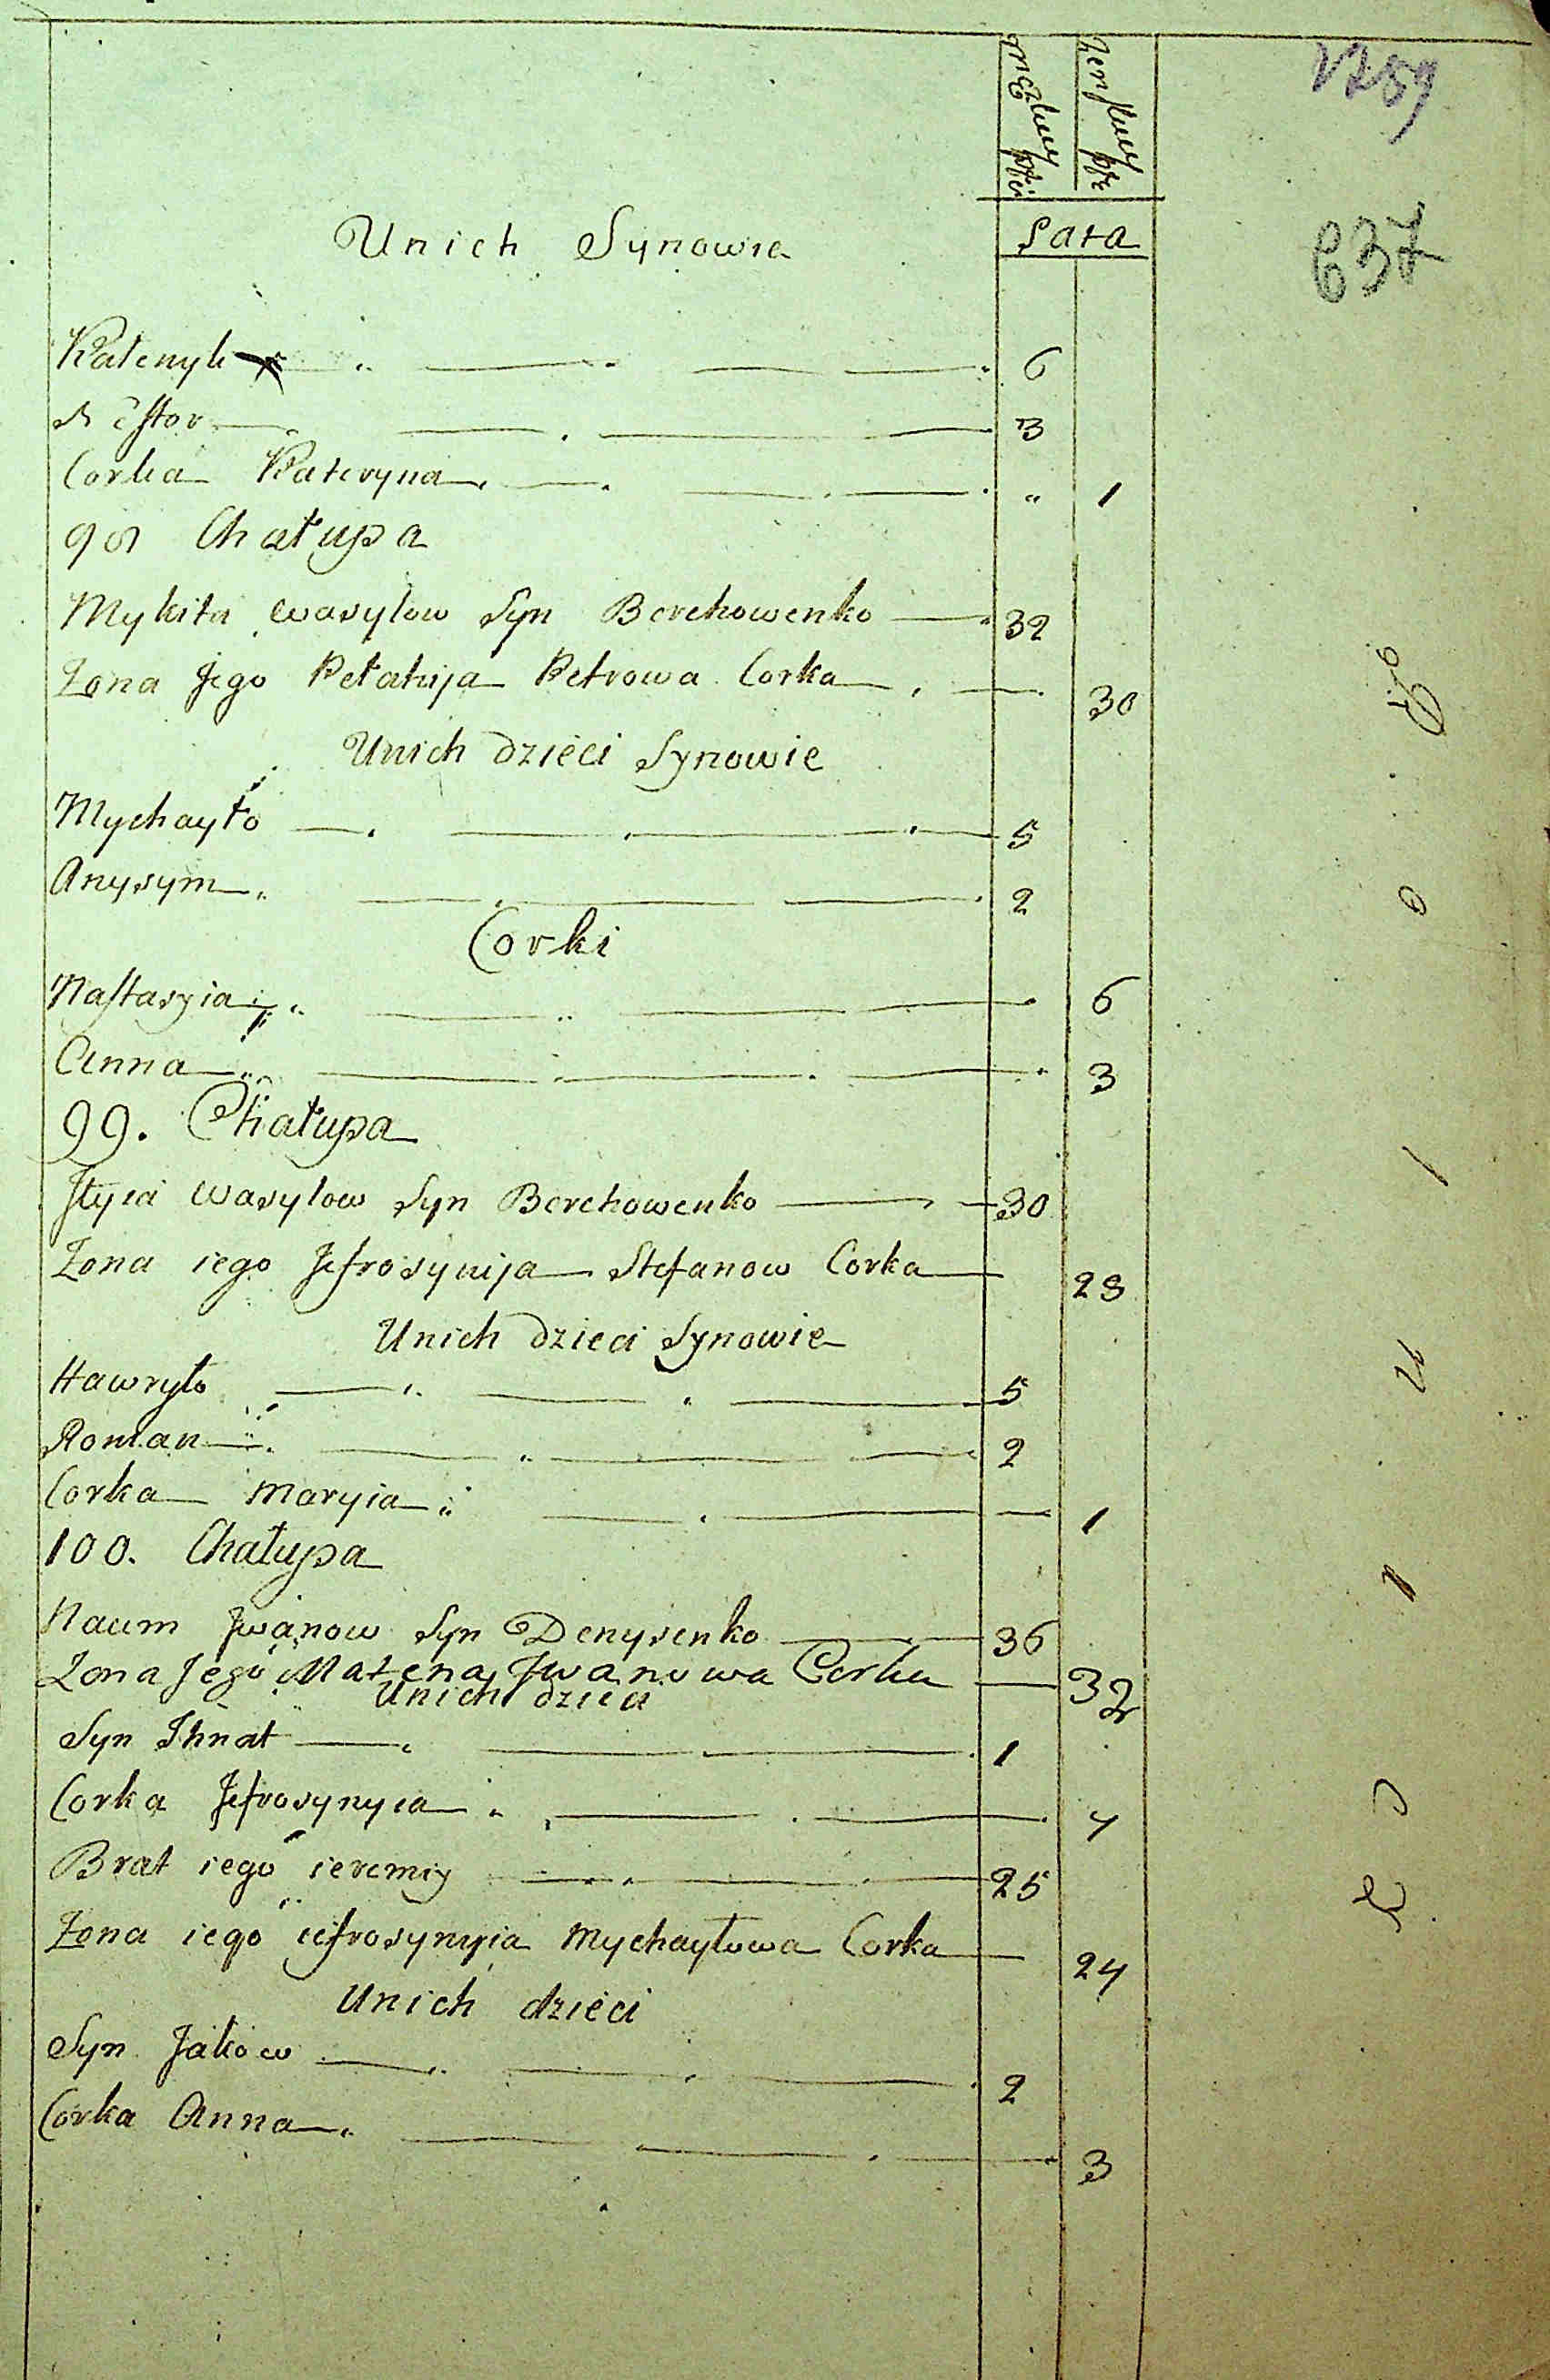 męzkuy płci
żenskuy płci
1259
637
Unich Synowie
Lata
Kalenyk 6
Nestor 3
Corka Kateryna „ 1
98 Chałupa
Mykita Wasylow Syn Berehowenko 32
Żona Jego Pełahija Petrowa Corka 30
Unich dzieci Synowie
Mychayło 5
Anysym 2
Corki
Nastasyia 6
Anna 3
99. Chałupa
Jlyia Wasylow Syn Berehowenko 30
Żona iego Jefrosynija Stefanow Corka 28
Unich dzieci Synowie
Hawryło 5
Roman 2
Corka Maryia 1
100. Chałupa
Naum Jwanow Syn Denysenko 36
Zona Jego Matena Jwanowa Corka 32
Unich dzieci
Syn Ihnat 1
Corka Jefrosynyia 4
Brat iego ieremiy 25
Żona iego iefrosynyia Mychayłowa Corka 24
Unich dzieci
Syn Jakow 2
Corka Anna 3